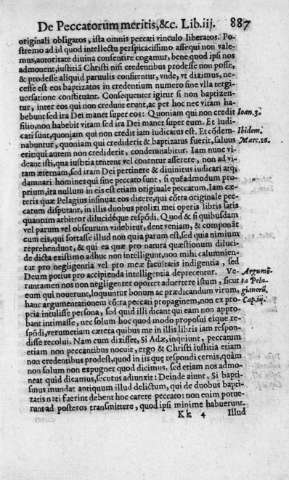 De Peccatorum meritis, &c. Lib. iij. 887
originali obligatos, ista omnis peccati vinculo liberatos. Po-
stremo ad id quod intellectu perspicacissimo assequi non vale-
mus, autoritate diuina consentire cogamur, bene quod ipsi nos
admonent, iustitiā Christi nisi credentibus prodesse non posse,
& prodesse aliquid paruulis confitentur, vnde, vt diximus, ne-
cesse est eos baptizatos in credentium numero sine vlla tergi-
uersatione constituant. Consequenter igitur si non baptizen-
tur, inter eos qui non credunt erunt, ac per hoc nec vitam ha-
bebunt sed ira Dei manet super eos: Quoniam qui non credit
filio, non habebit vitam sed ira Dei manet super eum. Et iudi-
cati sunt, quoniam qui non credit iam iudicatus est. Et cōdem-
nabuntur, quoniam qui crediderit & baptizatus fuerit, saluus
erit: qui autem non crediderit, condemnabitur. Iam nunc vi-
deant isti, qua iustitia tentent vel conentur asserere, non ad vi-
tam æternam, sed ad iram Dei pertinere & diuinitus iudicari atq;
damnari homines qui sine peccato sunt, si quēadmodum pro-
prium, ita nullum in eis est etiam originale peccatum. Iam cæ-
teris quæ Pelagius insinuat eos dicere, qui cōtra originale pec-
catum disputant, in illis duobus prolixi mei operis libris satis
quantum arbitror dilucidéque respōdi. Quod & si quibusdam
vel parum vel obscurum videbitur, dent veniam, & componāt
cum eis, qui fortasse illud non quia parum est, sed quia nimium
reprehendunt, & qui ea quæ pro natura quæstionum diluci-
de dicta existimo adhuc non intelligunt, non mihi calumnien-
tur pro negligentia vel pro meæ facultatis indigentia, sed
Deum potius pro accipienda intelligentia deprecentur. Ve-
runtamen nos non negligenter oportet aduertere istum, sicut
eum qui nouerunt, loquuntur bonum ac prædicandum virum,
hanc argumentationem cōtra peccati propaginem, non ex pro-
pria intulisse persona, sed quid illi dicant qui eam non appro-
bant intimasse, nec solum hoc quod modo proposui eique re-
spōdi, verumetiam cætera quibus me in illis libris iam respon-
disse recolui. Nam cum dixisset, Si Adæ, inquiunt, peccatum
etiam non peccantibus nocuit, ergo & Christi iustitia etiam
non credentibus prodest, quod in iis que respondi cernis, quàm
non solum non expugnet quod dicimus, sed etiam nos admo-
neat quid dicamus, secutus adiunxit: Deinde aiunt, Si bapti-
smus mundat antiquum illud delictum, qui de duobus bapti-
zatis nati fuerint debent hoc carere peccato: non enim potue-
runt ad posteros transmittere, quod ipsi minime habuerunt.
Kk 4 Illud
Ioan. 3.
Ibidem.
Marc. 16.
Argumē-
ta Pela-
gianorū,
Cap. iij.